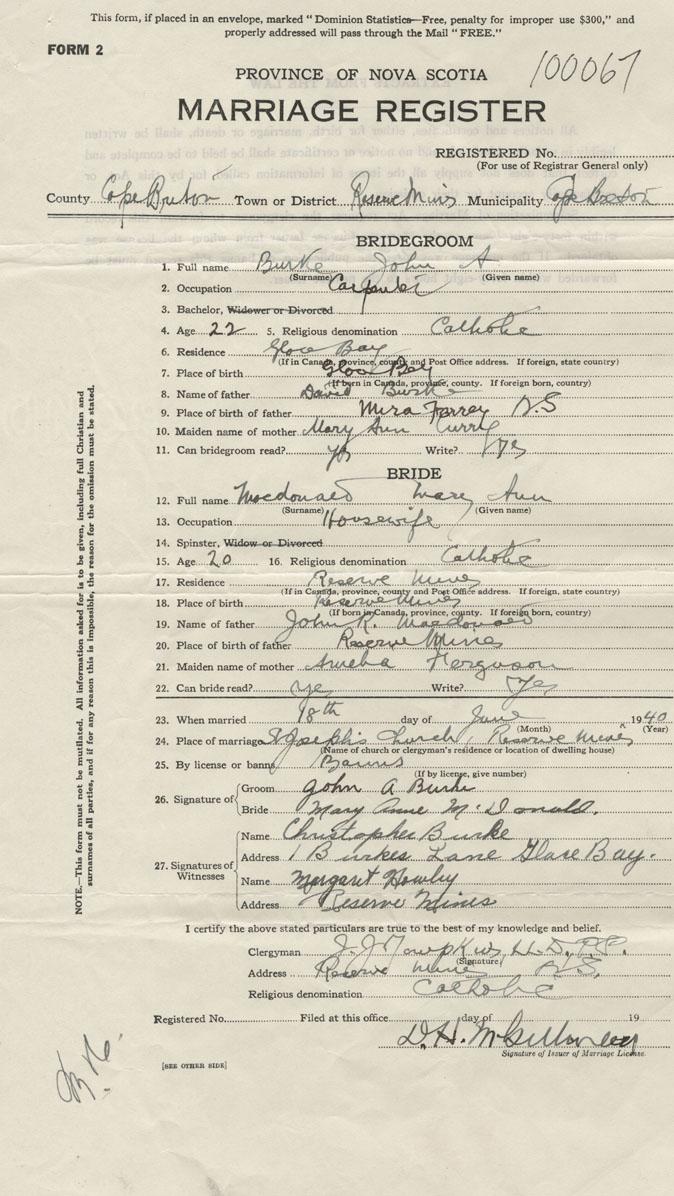 This form, if placed in an envelope, marked "Dominion Statistics—Free, penalty for improper use $300," and
properly addressed will pass through the Mail "FREE."
FORM 2
PROVINCE OF NOVA SCOTIA 100067
MARRIAGE REGISTER
REGISTERED No.
(For use of Registrar General only)
County Cape Breton Town or District Reserve Mines Municipality Cape Breton
BRIDEGROOM
1. Full name Burke John A
(Surname) (Given name)
2. Occupation Carpenter
3. Bachelor, Widower or Divorced
4. Age 22 5. Religious denomination Catholic
6. Residence Glace Bay
(If in Canada, province, county and Post Office address. If foreign, state country)
7. Place of birth Glace Bay
(If born in Canada, province, county. If foreign born, country)
8. Name of father David Burke
9. Place of birth of father Mira Ferrey N.S
10. Maiden name of mother Mary Ann Currie
11. Can bridegroom read? Yes Write? Yes
BRIDE
12. Full name Macdonald Mary Ann
(Surname) (Given name)
13. Occupation Housewife
14. Spinster, Widow or Divorced
15. Age 20 16. Religious denomination Catholic
17. Residence Reserve Mines
(If in Canada, province, county and Post Office address. If foreign, state country)
18. Place of birth Reserve Mines
(If born in Canada, province, county. If foreign born, country)
19. Name of father John K. Macdonald
20. Place of birth of father Reserve Mines
21. Maiden name of mother Amelia Ferguson
22. Can bride read? Yes Write? Yes
23. When married 18th day of June 1940
(Month) (Year)
24. Place of marriage St Joseph's Church, Reserve Mines
(Name of church or clergyman's residence or location of dwelling house)
25. By license or banns Banns
(If by license, give number)
26. Signature of
Groom John A Burke
Bride Mary Anne McDonald.
27. Signatures of Witnesses
Name Christopher Burke
Address 1 Burkes Lane Glace Bay.
Name Margaret Howley
Address Reserve Mines
I certify the above stated particulars are true to the best of my knowledge and belief.
Clergyman J. J. Tompkins, LL.D., P.P.
(Signature)
Address Reserve Mines N.S.
Religious denomination Catholic
Registered No. Filed at this office day of 19
D. H.
Signature of Issuer of Marriage License.
[SEE OTHER SIDE]
NOTE.—This form must not be mutilated. All information asked for is to be given, including full Christian and
surnames of all parties, and if for any reason this is impossible, the reason for the omission must be stated.